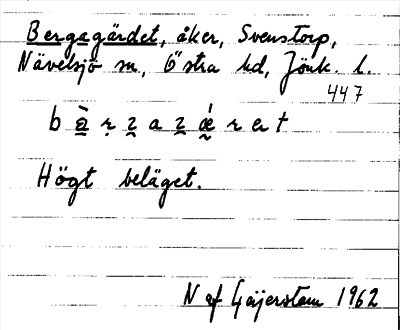 Bergagärdet, åker, Svenstorp,
Nävelsjö sn, Östra hd, Jönk. l.
447
Högt beläget.
N af Geijerstam 1962